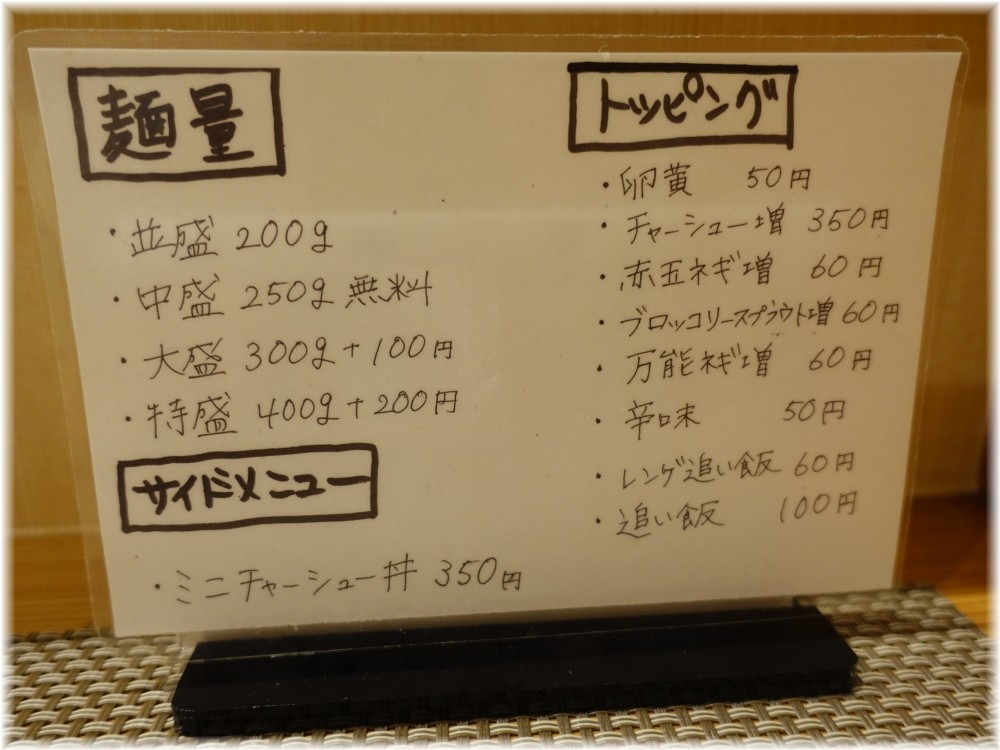 麺量
・並盛 200g
・中盛 250g 無料
・大盛 300g+100円
・特盛 400g+200円
サイドメニュー
・ミニチャーシュー丼 350円
トッピング
・卵黄 50円
・チャーシュー増 350円
・赤玉ネギ増 60円
・ブロッコリースプラウト増 60円
・万能ネギ増 60円
・辛味 50円
・レンゲ追い飯 60円
・追い飯 100円